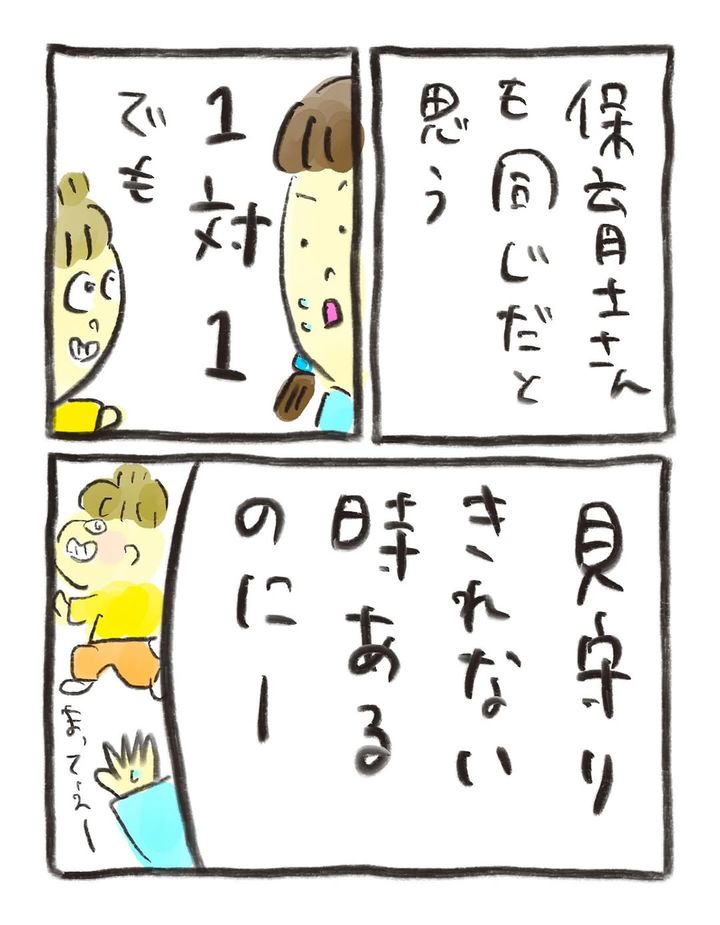 保育士さん
も同じだと
思う
1対1
でも
見守り
きれない
時ある
のにー
まってぇー